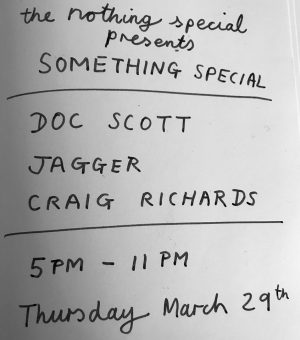 the nothing special
presents
SOMETHING SPECIAL
DOC SCOTT
JAGGER
CRAIG RICHARDS
5PM - 11 PM
Thursday March 29th